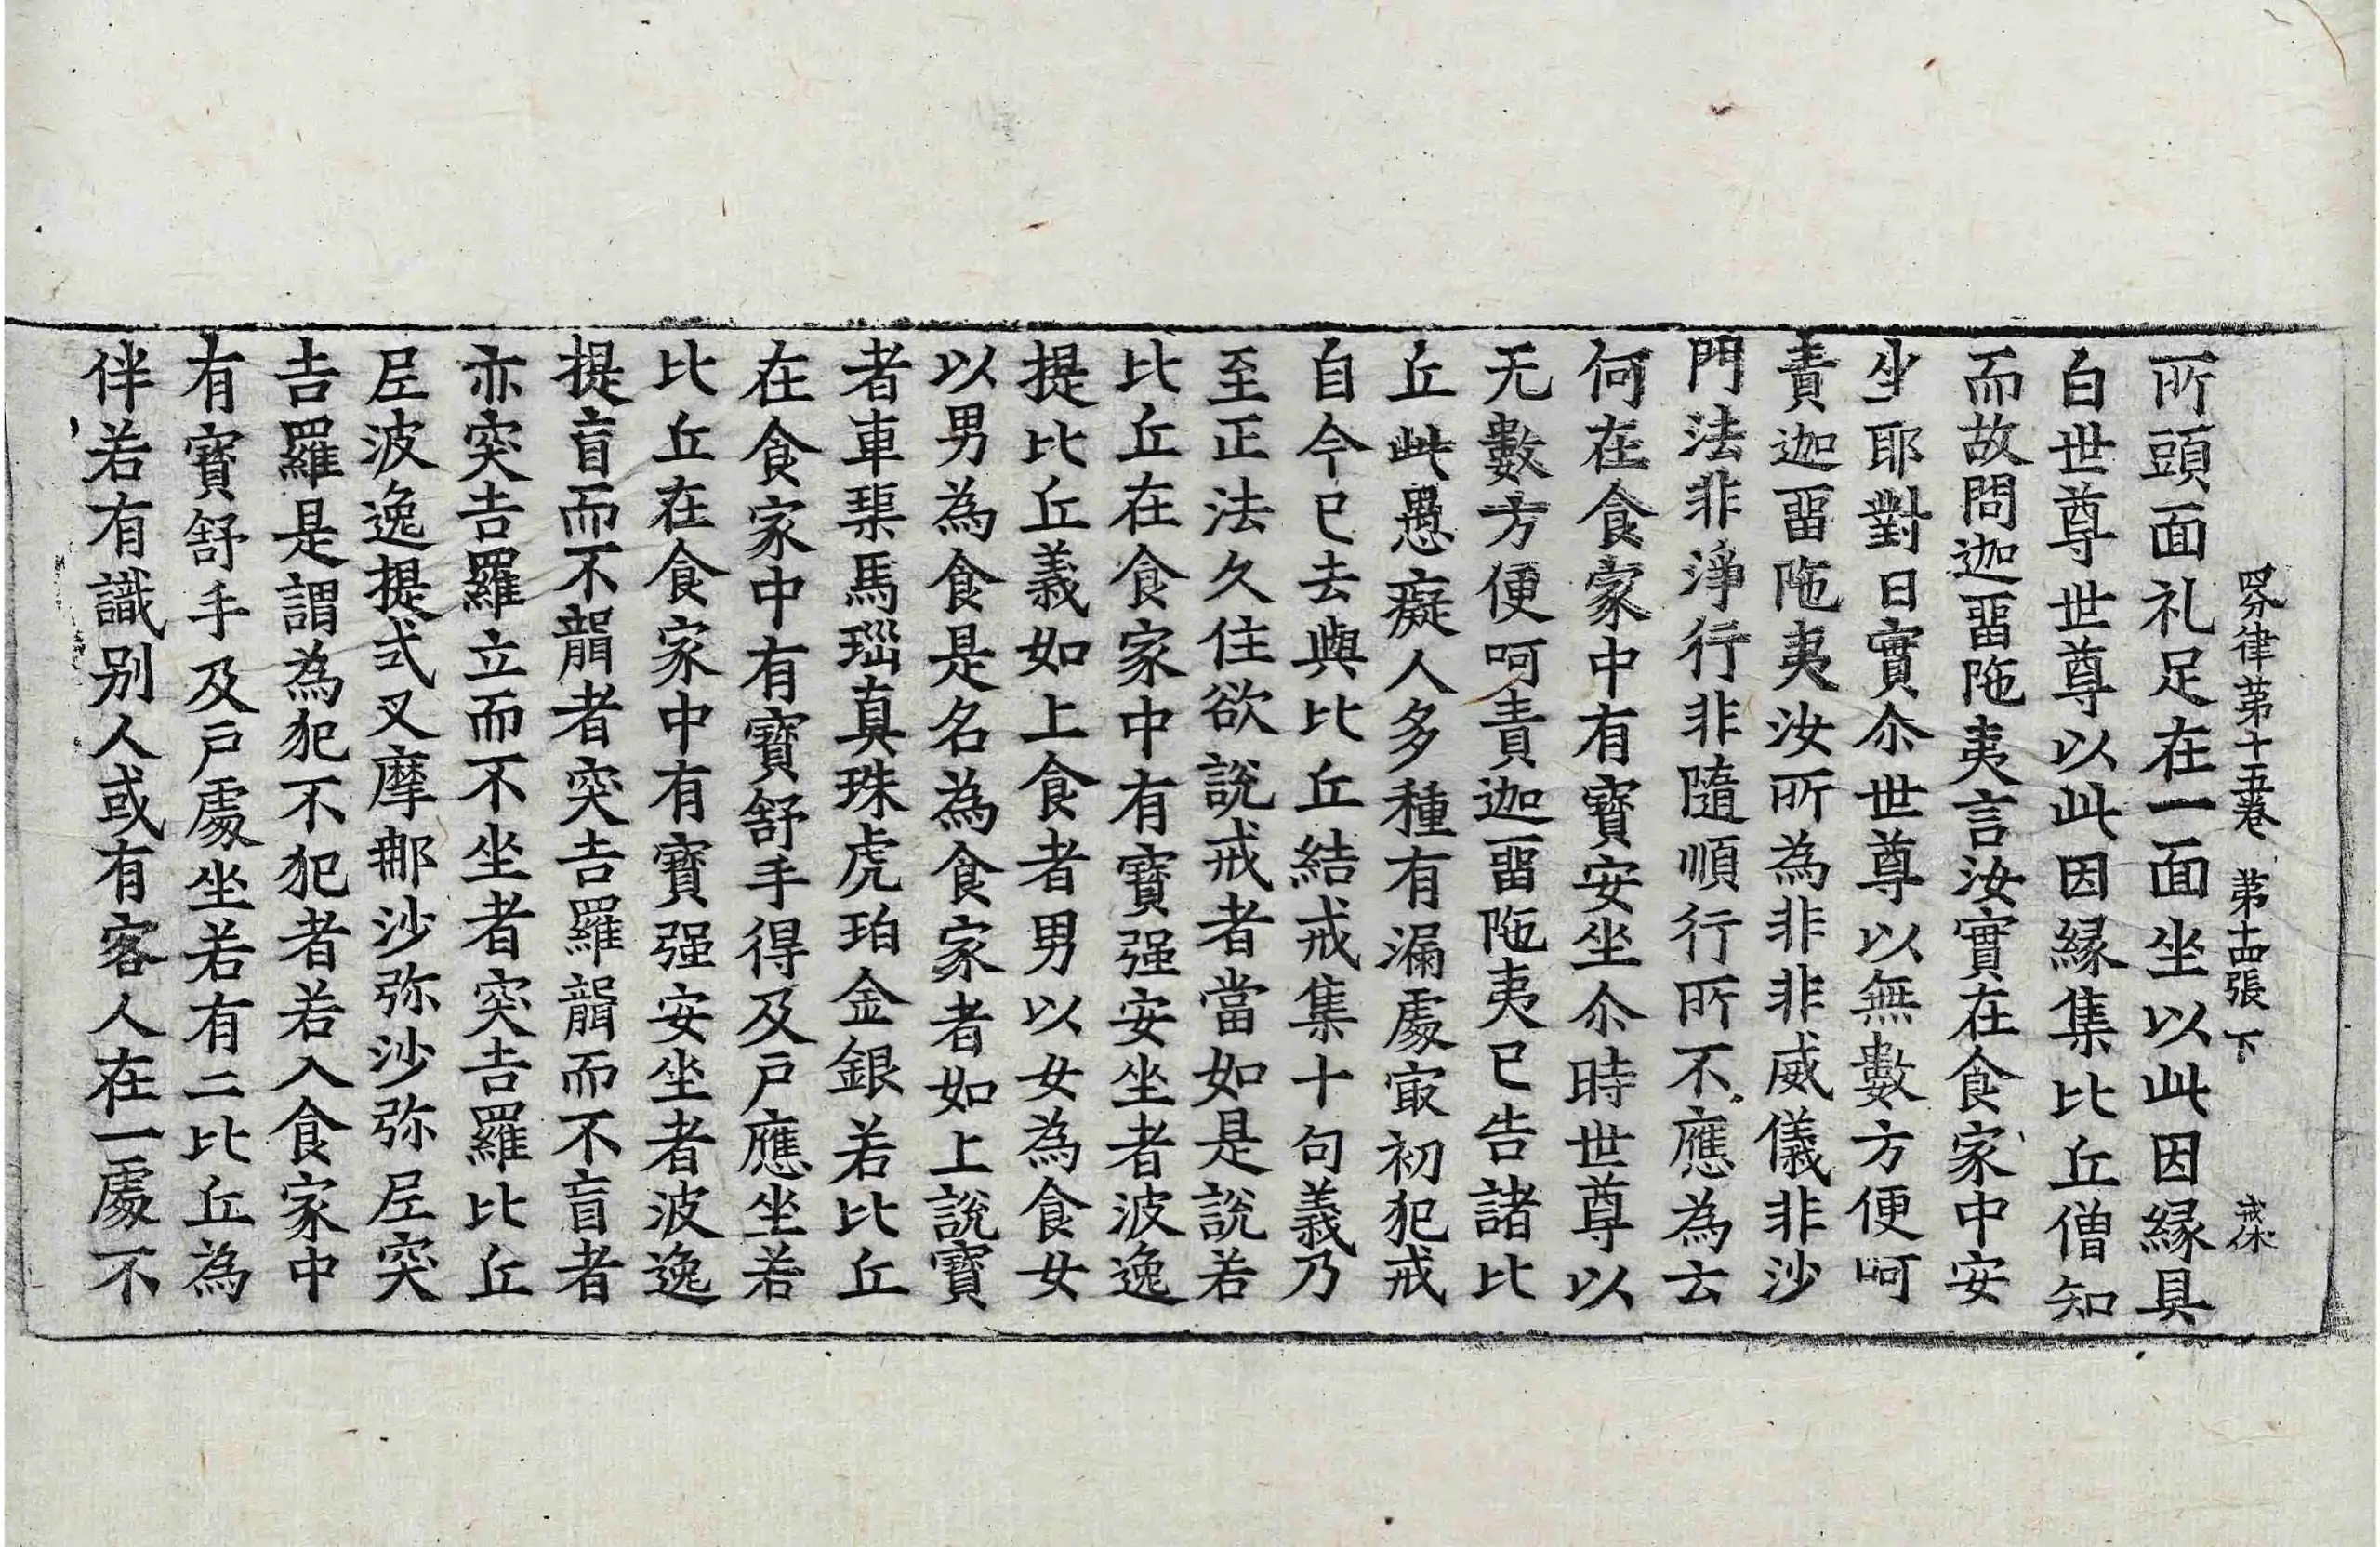 四分律第十五卷 第十四張 下
所頭面礼足在一面坐以此因縁具
白世尊世尊以此因縁集比丘僧知
而故問迦畱陁夷言汝實在食家中安
坐耶對曰實尒世尊以無數方便呵
責迦畱陁夷汝所為非非威儀非沙
門法非淨行非隨順行所不應為云
何在食家中有寶安坐尒時世尊以
无數方便呵責迦畱陁夷已告諸比
丘此愚癡人多種有漏處冣初犯戒
自今已去與比丘結戒集十句義乃
至正法久住欲說戒者當如是說若
比丘在食家中有寶强安坐者波逸
提比丘義如上食者男以女為食女
以男為食是名為食家者如上說寶
者車璖馬瑙真珠虎珀金銀若比丘
在食家中有寶舒手得及戶應坐若
比丘在食家中有寶强安坐者波逸
提盲而不聾者突吉羅聾而不盲者
亦突吉羅立而不坐者突吉羅比丘
尼波逸提式叉摩那沙弥沙弥尼突
吉羅是謂為犯不犯者若入食家中
有寶舒手及戶處坐若有二比丘為
伴若有識别人或有客人在一處不